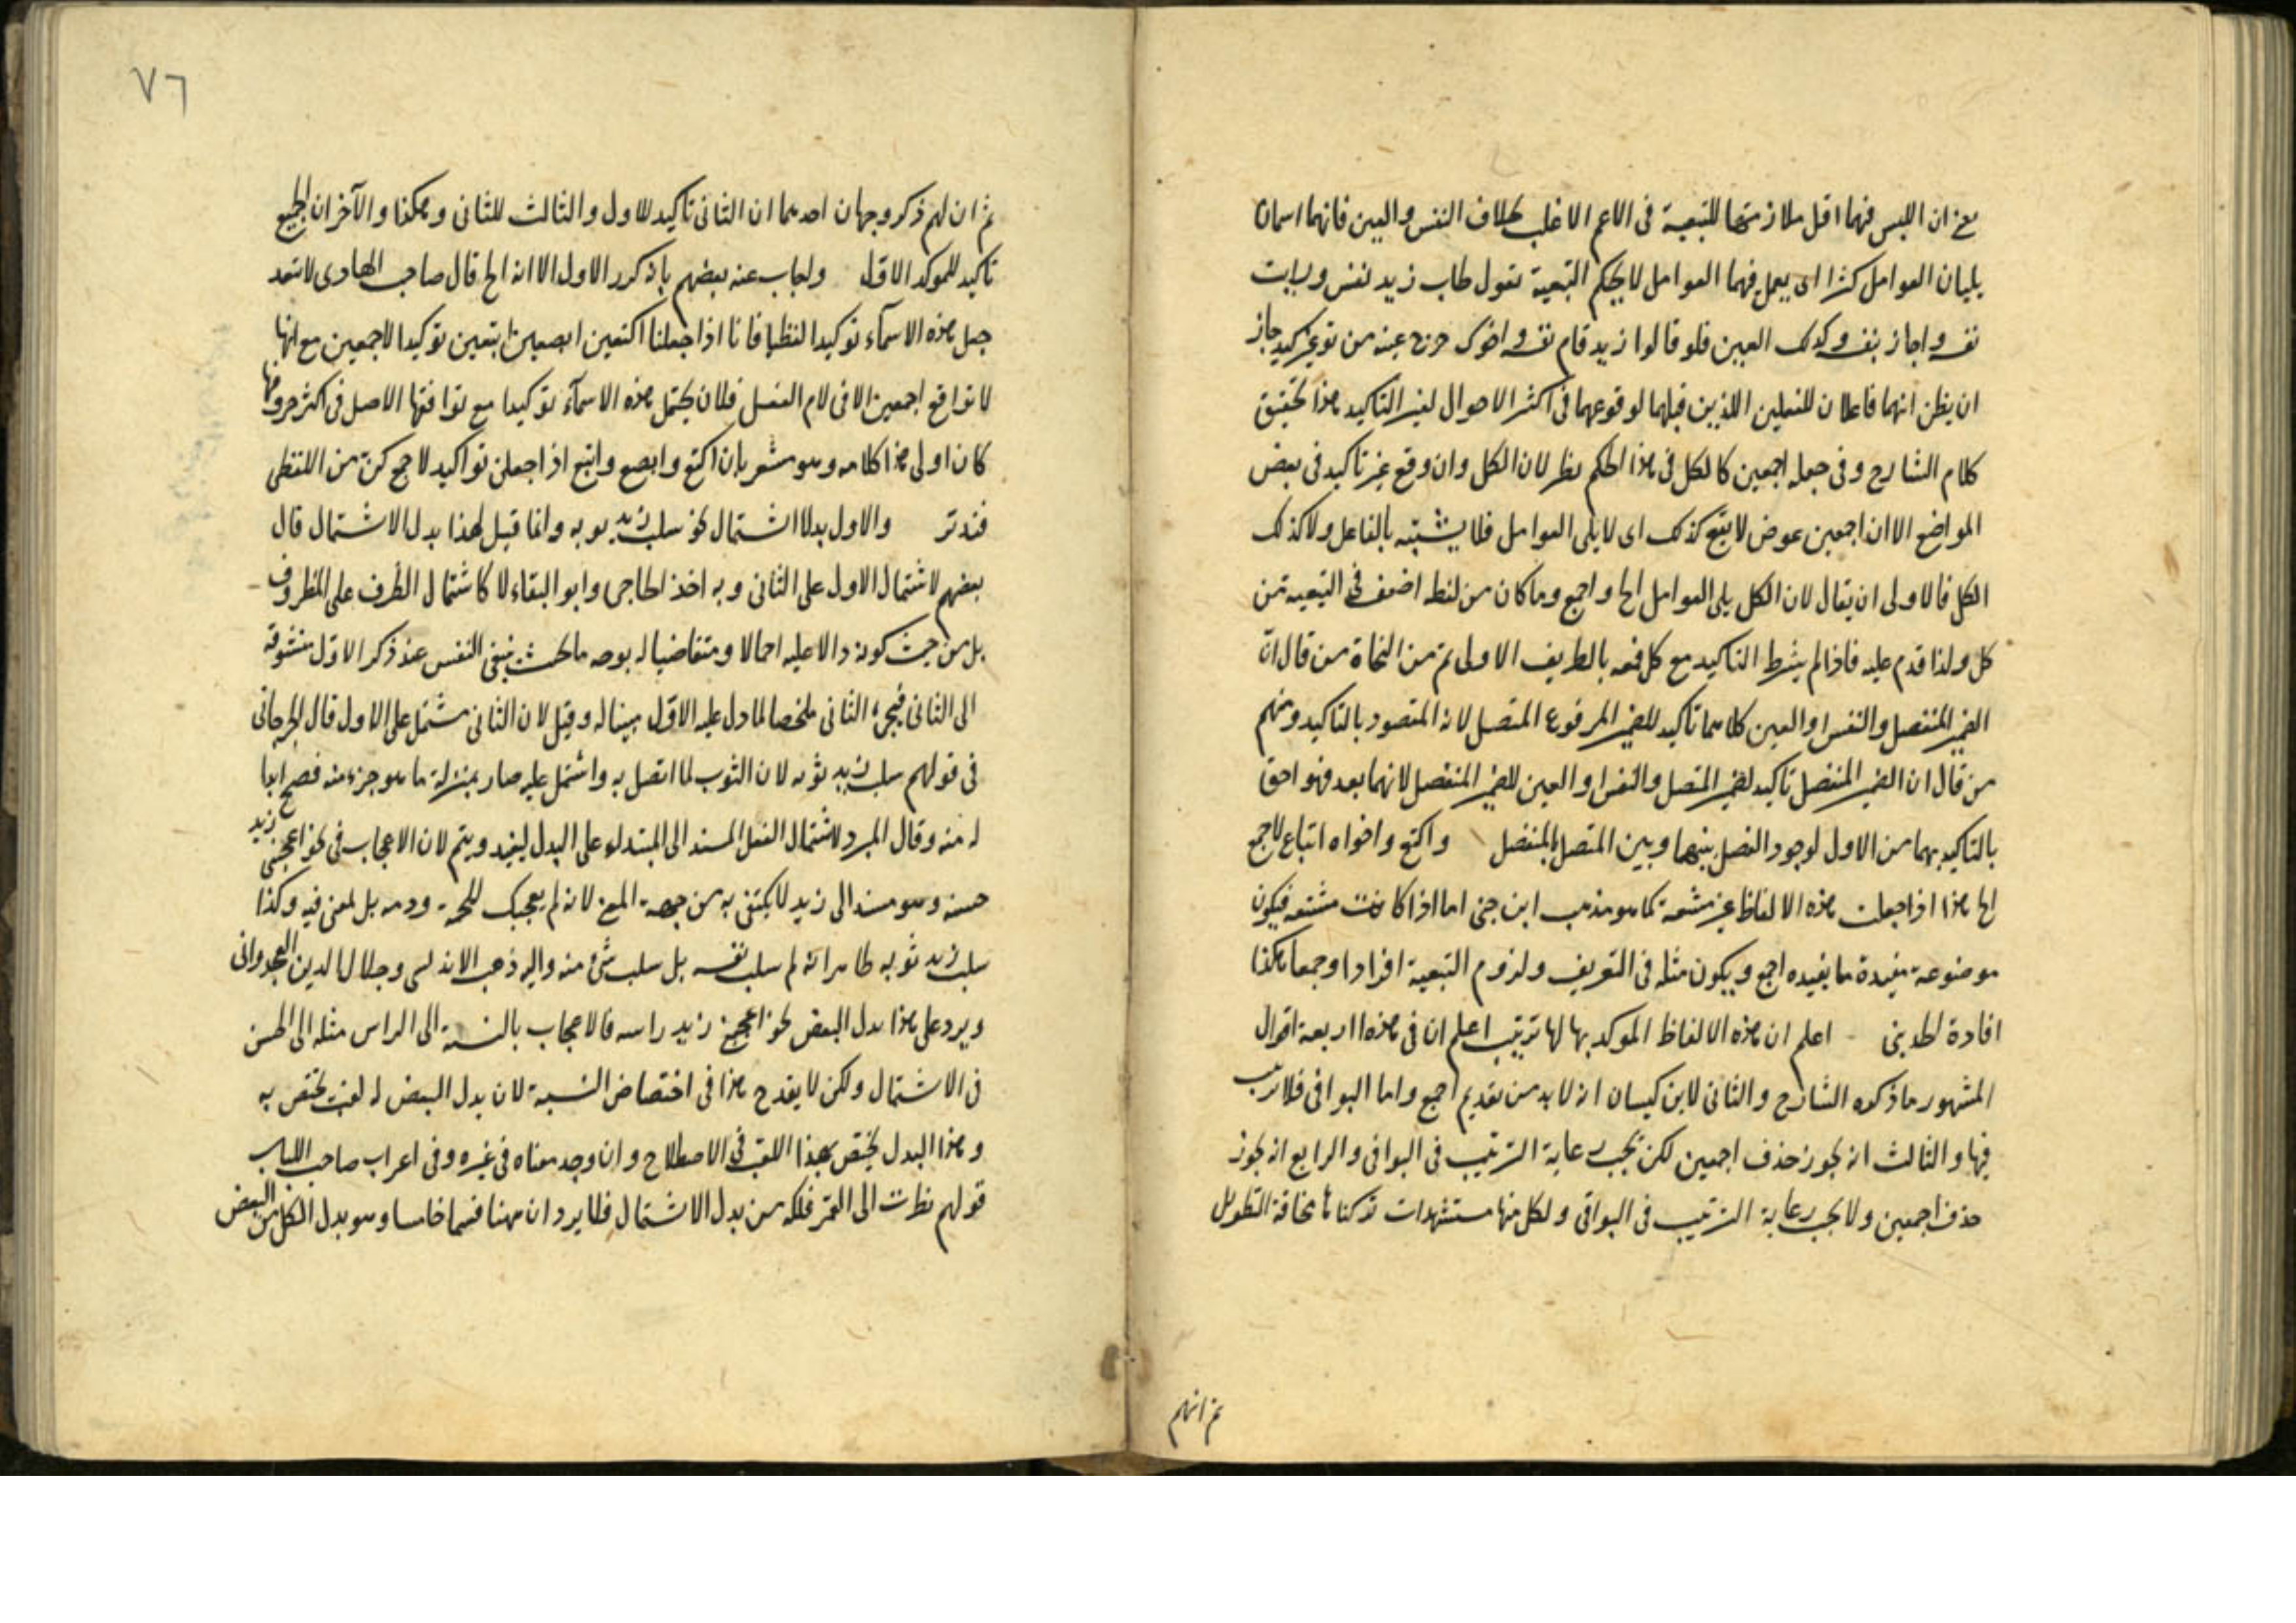 مع ان اللبس فيهما اقل ملازمتهما للتبعية فى الاعم الاغلب بخلاف النفس والعين فانهما اسمان
يليان العوامل كثيرا اى يعمل فيهما العوامل لا بحكم التبعية تقول طاب زيد نفس ورايت
نفسه واجاز بنفسه وكذلك العين فلو قالوا زيد قام نفسه واخوك خرج عينه من غير توكيد جاز
ان يظن انهما فاعلان للفعلين اللذين قبلهما لوقوعهما فى اكثر الاحوال لغير التاكيد هذا تحقيق
كلام الشارح وفى جعله اجمعين كالكل فى هذا الحكم نظر لان الكل وان وقع غير تاكيد فى بعض
المواضع الا ان اجمعين عوض لا يقع كذلك اى لا يلى العوامل فلا يشتبه بالفاعل ولا كذلك
الكل فالاولى ان يقال لان الكل يلى العوامل الخ واجمع وما كان من لفظه اضعف فى التبعيه من
كل ولذا قدم عليه فاذا لم يشرط التاكيد مع كل فمعه بالطريق الاولى ثم من النحاة من قال ان
الضمير المنفصل والنفس والعين كلاهما تاكيد للضمير المرفوع المتصل لانه المقصود بالتاكيد ومنهم
من قال ان الضمير المنفصل تاكيد لضمير المتصل والنفس والعين للضمير المنفصل لانهما بعده فهو احق
بالتاكيد بهما من الاول لوجود الفصل بينهما وبين المتصل بالمنفصل واكتع واخواه اتباع لاجمع
الخ هذا اذا جعلت هذه الالفاظ غير مشتقة كما هو مذهب ابن جنى اما اذا كانت مشتقه فيكون
موضوعة مفيدة ما يفيده اجمع ويكون مثله فى التعريف ولزوم التبعية افرادا وجمعا هكذا
افادة الحديثى اعلم ان هذه الالفاظ الموكد بها لها ترتيب اعلم ان فى هذه اربعة اقوال
المشهور ما ذكره الشارح والثانى لابن كيسان انه لا بد من تقديم اجمع واما البواقى فلا ترتيب
فيها والثالث انه يجوز حذف اجمعين لكن يجب رعاية الترتيب فى البواقى والرابع انه يجوز
حذف اجمعين ولا يجب رعاية الترتيب فى البواقى ولكل منها مستشهدات تركناها مخافة التطويل
ثم انهم
٧٦
ثم ان لهم ذكر وجهان احدهما ان الثانى تاكيد للاول والثالث للثانى وهكذا والآخر ان الجميع
تاكيد للموكد الاول واجاب عنه بعضهم بانه كرر الاول الا انه الخ قال صاحب الهادى لا تبعد
جعل هذه الاسماء توكيدا لفظيا فانا اذا جعلنا اكتعين ابصعين ابتعين توكيدا لاجمعين مع انها
لا توافق اجمعين الا فى لام الفعل فلان يحتمل هذه الاسماء توكيدا مع توافقها الاصل فى اكثر حروفها
كان اولى هذا كلامه وهو مشعر بان اكتع وابصع وابتع اذا جعلن تواكيد لاجمع كن من اللفظى
فتدبر والاول بدل الاشتمال نحو سلب زيد ثوبه وانما قيل لهذا بدل الاشتمال قال
بعضهم لاشتمال الاول على الثانى وبه اخذ الحاجبى وابو البقاء لا كاشتمال الظرف على المظروف
بل من حيث كونه دالا عليه اجمالا ومتقاضيا له بوجه ما بحيث تبقى النفس عند ذكر الاول متشوقة
الى الثانى فيجئ الثانى ملخصا لما دل عليه الاول مبينا له وقيل لان الثانى مشتمل على الاول قال الجرجانى
فى قولهم سلب زيد ثوبه لان الثوب لما اتصل به واشتمل عليه صار بمنزلة ما هو جزء منه فصح ابدا
له منه وقال المبرد لاشتمال الفعل المسند الى المبتدل منه على البدل ليفيد ويتم لان الاعجاب فى نحو اعجبنى زيد
حسنه وهو مسند الى زيد لا يكتفى به من جهة المعنى لانه لم يعجبك للحمه ودمه بل لمعنى فيه وكذا
سلب زيد ثوبه ظاهر انه لم يسلب نفسه بل سلب شئ منه واليه ذهب الاندلسى وجلال الدين الغجدوانى
ويرد على هذا بدل البعض نحو اعجبنى زيد راسه فالاعجاب بالنسبة الى الراس مثله الى الحسن
فى الاشتمال ولكن لا يقدح هذا فى اختصاص النسبة لان بدل البعض له لقب يختص به
وهذا البدل يختص بهذا اللقب فى الاصطلاح وان وجد معناه فى غيره وفى اعراب صاحب اللباب
قولهم نظرت الى القمر فلكه من بدل الاشتمال فلا يرد ان ههنا قسما خامسا وهو بدل الكل من البعض